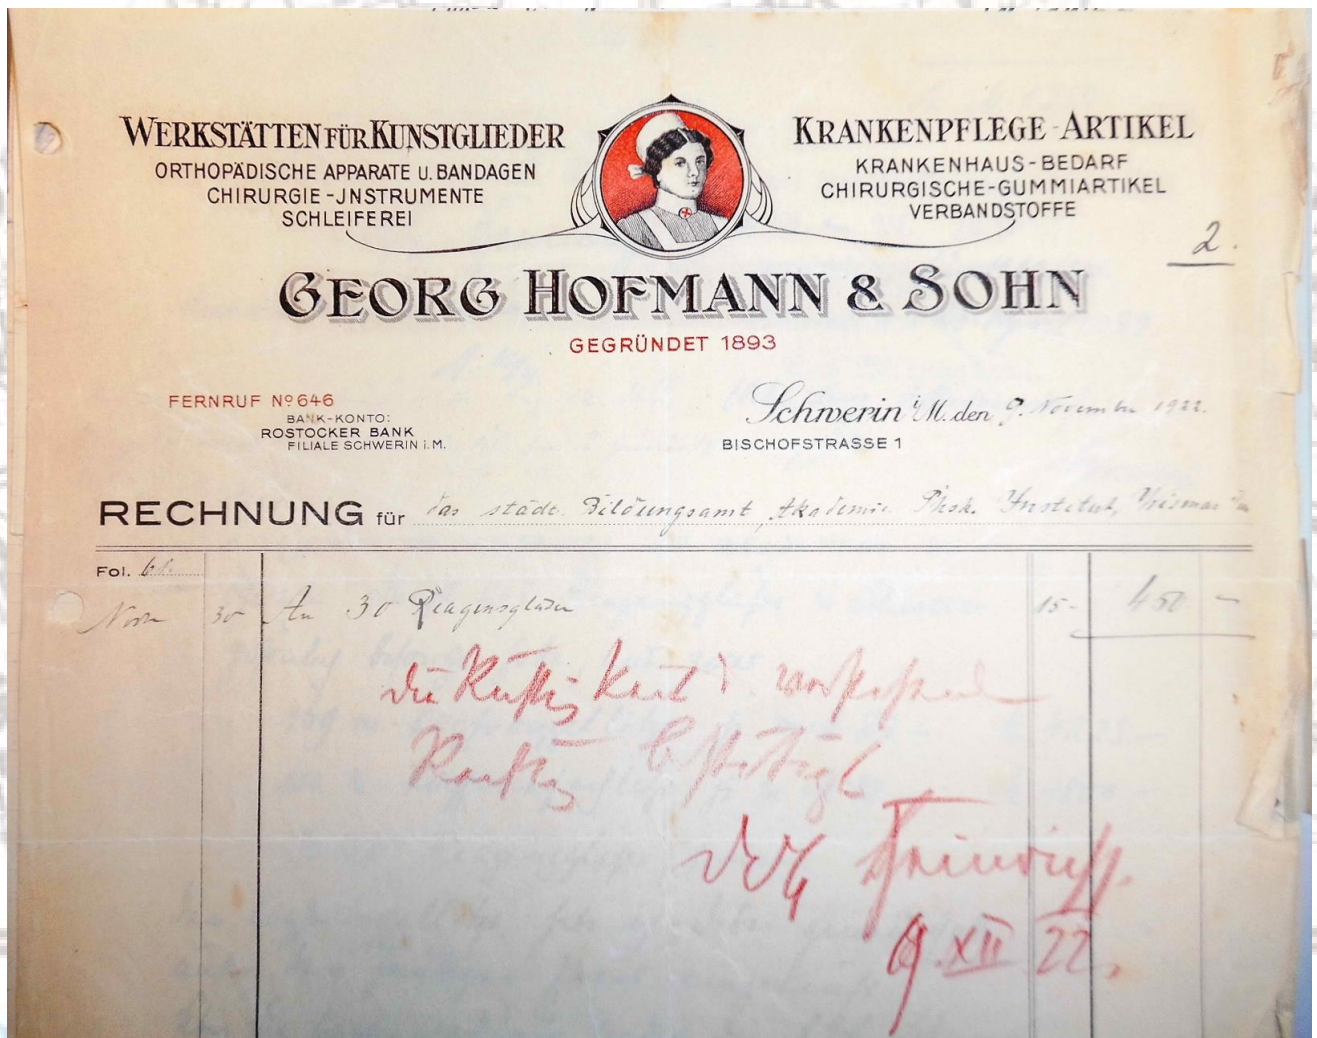 WERKSTÄTTEN FÜR KUNSTGLIEDER
ORTHOPÄDISCHE APPARATE U. BANDAGEN
CHIRURGIE-JNSTRUMENTE
SCHLEIFEREI
KRANKENPFLEGE-ARTIKEL
KRANKENHAUS-BEDARF
CHIRURGISCHE-GUMMIARTIKEL
VERBANDSTOFFE
2.
GEORG HOFMANN & SOHN
GEGRÜNDET 1893
FERNRUF No 646
BANK-KONTO:
ROSTOCKER BANK
FILIALE SCHWERIN i. M.
Schwerin i/M. den 9. November 1922.
BISCHOFSTRASSE 1
RECHNUNG für das städt. Bildungsamt, Akademie Institut,
Fol.
30 An 30 Reagensgläser 15.- 450 -
die
9. XII 22.